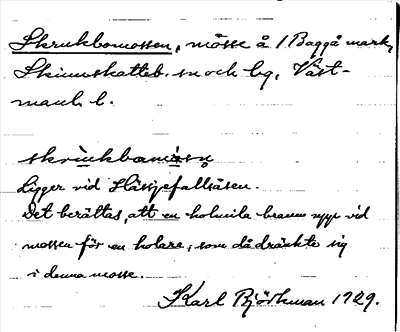 Skrukbomossen, mosse å /Baggå mark,
Skinnskatteb. sn och bg, Väst-
manl. l.
skrukbomåsn
Ligger vid Hässjefallsåsen.
Det berättas, att en kolmila brann upp vid
mossen för en kolare, som då dränkte sig
i denna mosse.
Karl Björkman 1929.